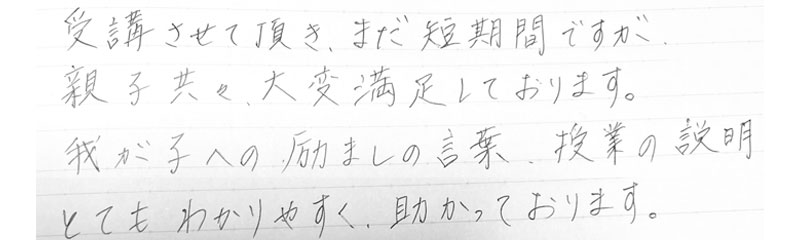 受講させて頂き、まだ短期間ですが、
親子共々、大変満足しております。
我が子への励ましの言葉、授業の説明
とてもわかりやすく、助かっております。